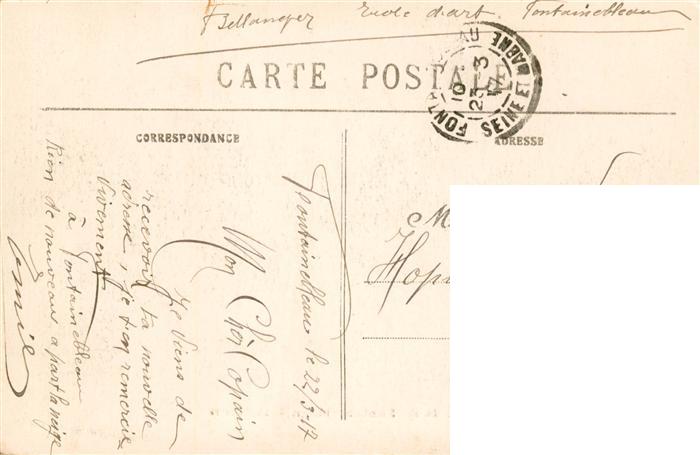 Bellanger Ecole d'art Fontainebleau
CARTE POSTALE
FONTAINEBLEAU
SEINE ET MARNE
10
23-3
17
CORRESPONDANCE
ADRESSE
M
Hop
Fontainebleau le 22/3-17
Mon Cher Copain
Je viens de
recevoir ta nouvelle
adresse, je t'en remercie
vivement
à Fontainebleau
Rien de nouveau a part la neige
Emile